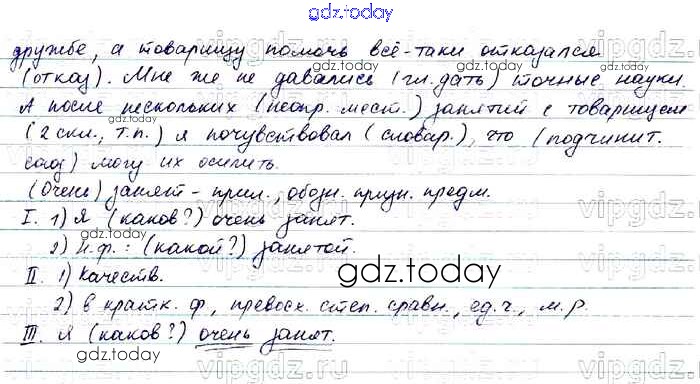 gdz.today
дружбе, а товарищу помочь всё-таки отказался
(отказ). Мне же не давались (гл. дать) точные науки.
А после нескольких (неопр. мест.) занятий с товарищем
(2 скл., т.п.) я почувствовал (словар.), что (подчинит.
союз) могу их осилить.
(Очень) занят - прил., обозн. призн. предм.
I. 1) Я (каков?) очень занят.
2) н.ф.: (какой?) занятой.
II. 1) Качеств.
2) в кратк. ф., превосх. степ. сравн., ед.ч., м.р.
III. Я (каков?) очень занят.
gdz.today
gdz.today
gdz.today
gdz.today
gdz.today
vipgdz.ru